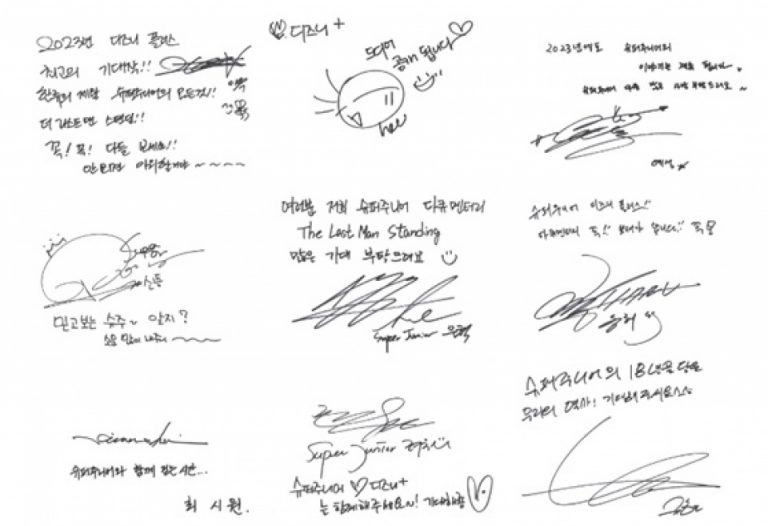 2023년 디즈니 플러스
최고의 기대작!!
한류의 제왕 슈퍼주니어의 모든것!!
더 라스트맨 스탠딩!!
꼭! 꼭! 다들 보세요!!
안보면 아쉬울거야~~~~
이특
디즈니+
드디어
공개 됩니다
hee
2023년에도 슈퍼주니어의
이야기는 계속 됩니다.
슈퍼주니어 사랑 많은 부탁드려요~
예성
신동
믿고보는 슈주~ 알지?
많이
여러분 저희 슈퍼주니어 다큐멘터리
The Last Man Standing
많은 기대 부탁드려요
Super Junior 은혁
슈퍼주니어 디즈니 플러스!!
꼭!!
동해
슈퍼주니어와 함께 걷는 시간...
최 시원.
Super Junior 려욱
슈퍼주니어 ♡ 디즈니+
는 함께해주세요~! 기대해줘
슈퍼주니어의 18년을 담은
우리의 역사! 기대해주세요
규현